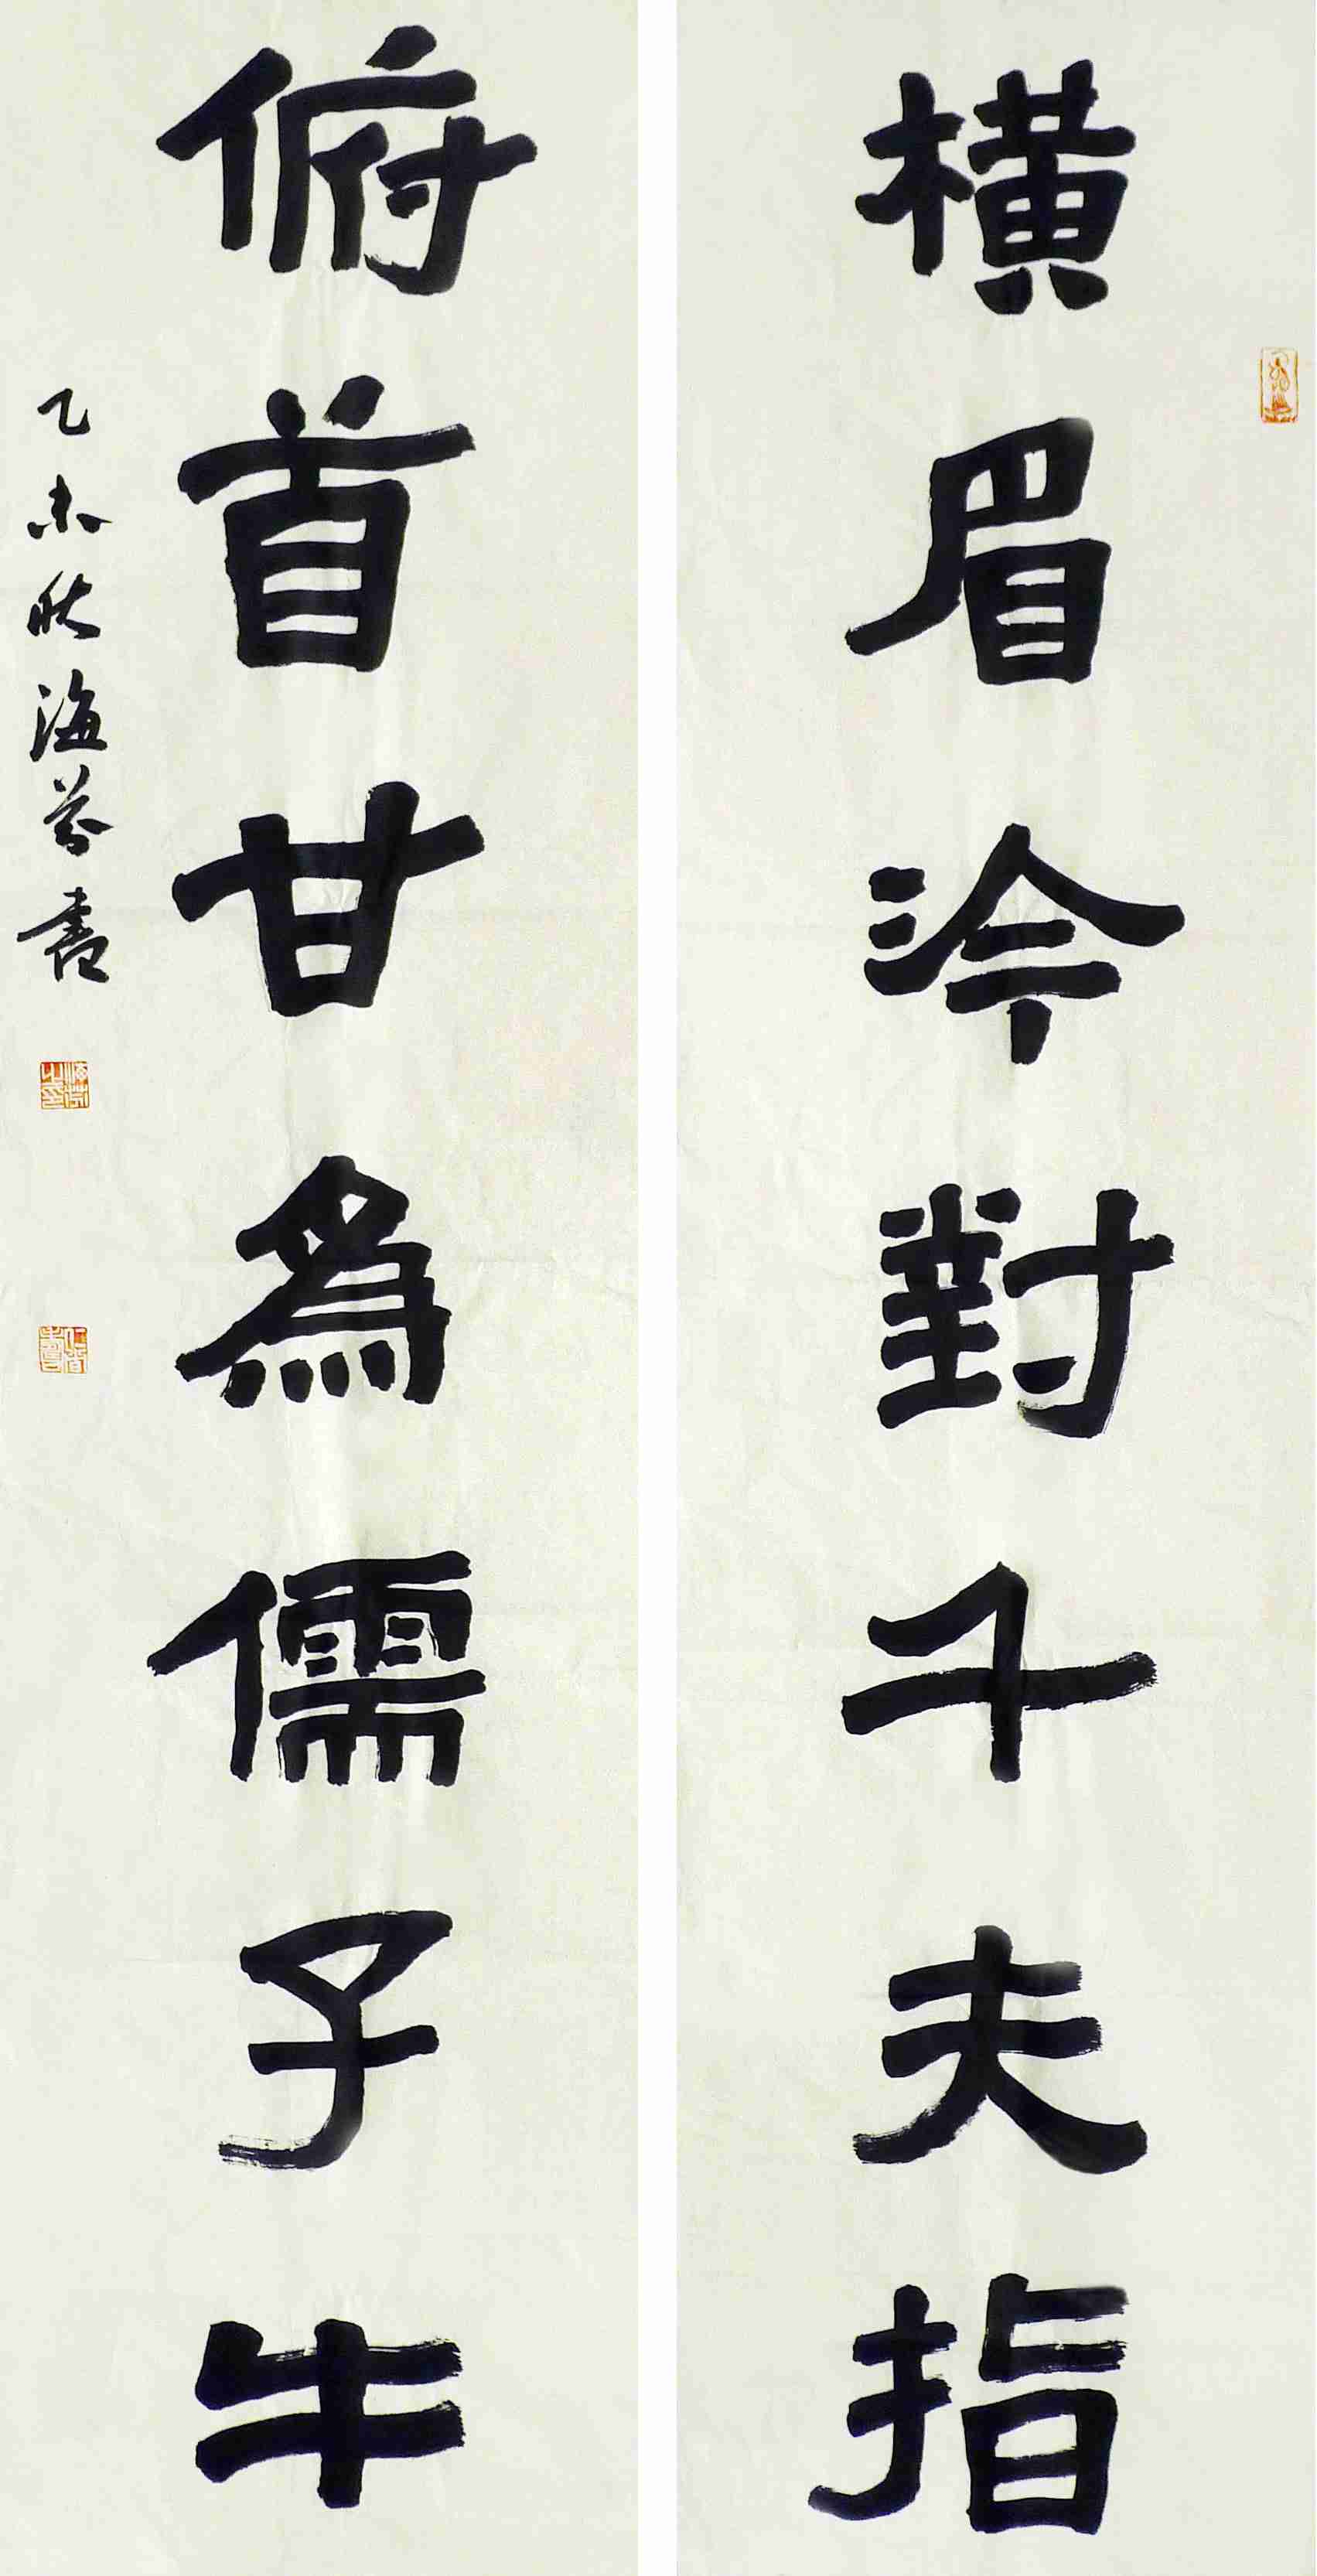 橫眉冷對千夫指
俯首甘為儒子牛
乙未秋海芬書